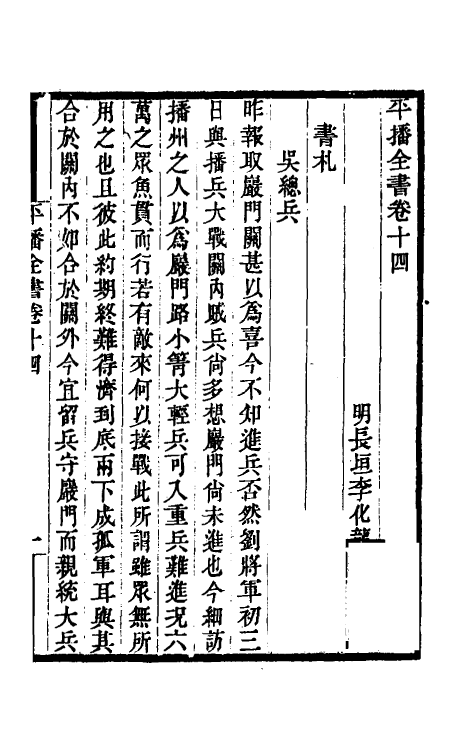 平播全書卷十四
明長垣李化龍
書札
吳總兵
昨報取巖門關甚以為喜今不知進兵否然劉將軍初三
日與播兵大戰關內賊兵尙多想巖門尙未進也今細訪
播州之人以為巖門路小箐大輕兵可入重兵難進況六
萬之眾魚貫而行若有敵來何以接戰此所謂雖眾無所
用之也且彼此約期終難得濟到底兩下成孤軍耳與其
合於關內不如合於關外今宜留兵守巖門而親統大兵
平播全書卷十四
一